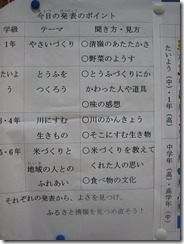 今日の発表のポイント
学級 テーマ 聞き方・見方
1年 やさいづくり ○清嶺のあたたかさ
○野菜のようす
たいよう とうふをつくろう ○とうふづくりにかかわった人や道具
○味の感想
3・4年 川にすむ生きもの ○川のかんきょう
○そこにすむ生き物
5・6年 米づくりと地域の人とのふれあい ○米づくりを教えてくれた人の思い
○食べ物の文化
それぞれの発表から、よさを見つけ、
ふるさと清嶺を見つめ直そう！
たいよう(中)・1年(高)・
中学年(高)・高学年(中)